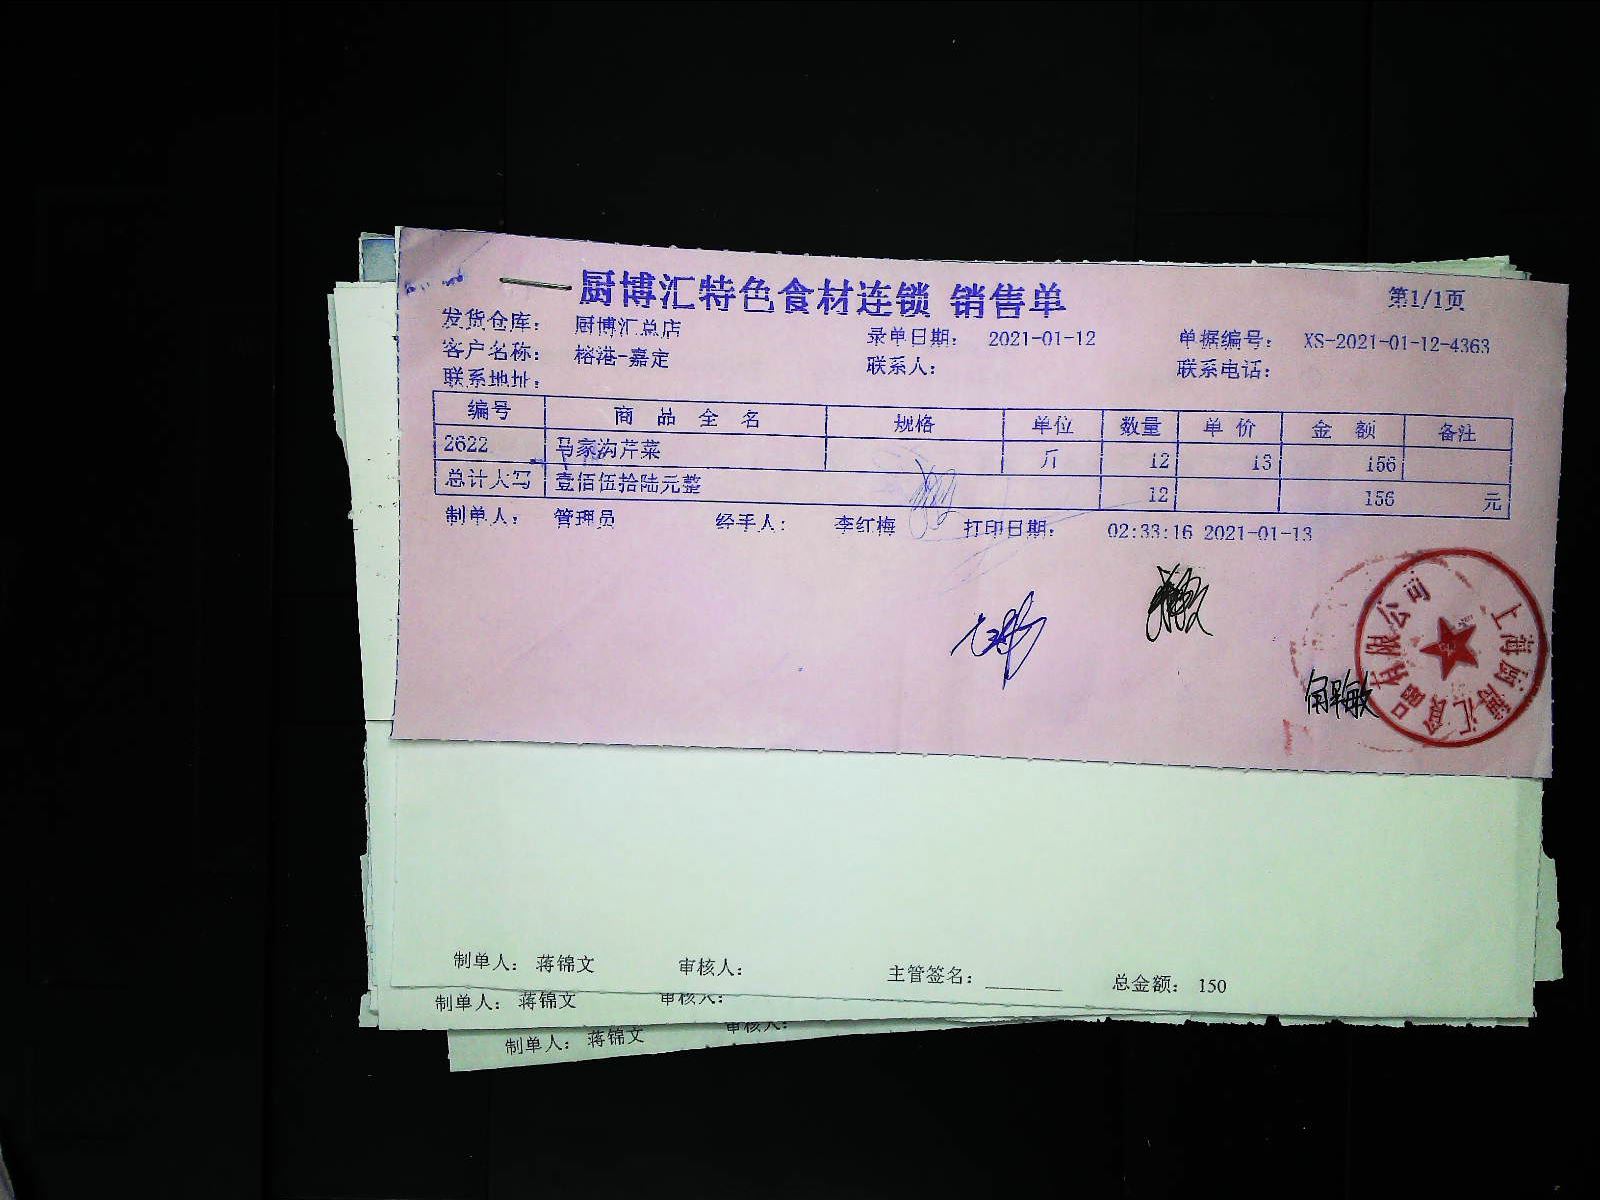 厨博汇特色食材连锁 销售单 第1/1页
发货仓库： 厨博汇总店 录单日期： 2021-01-12 单据编号： XS-2021-01-12-4363
客户名称： 榕港-嘉定 联系人： 联系电话：
联系地址：
编号 商品全名 规格 单位 数量 单价 金额 备注
2622 马家沟芹菜 斤 12 13 156
总计大写 壹佰伍拾陆元整 12 156 元
制单人： 管理员 经手人： 李红梅 打印日期： 02:33:16 2021-01-13
有限公司
制单人： 蒋锦文 审核人： 主管签名： 总金额： 150
制单人： 蒋锦文 审核人：
制单人： 蒋锦文 审核人：